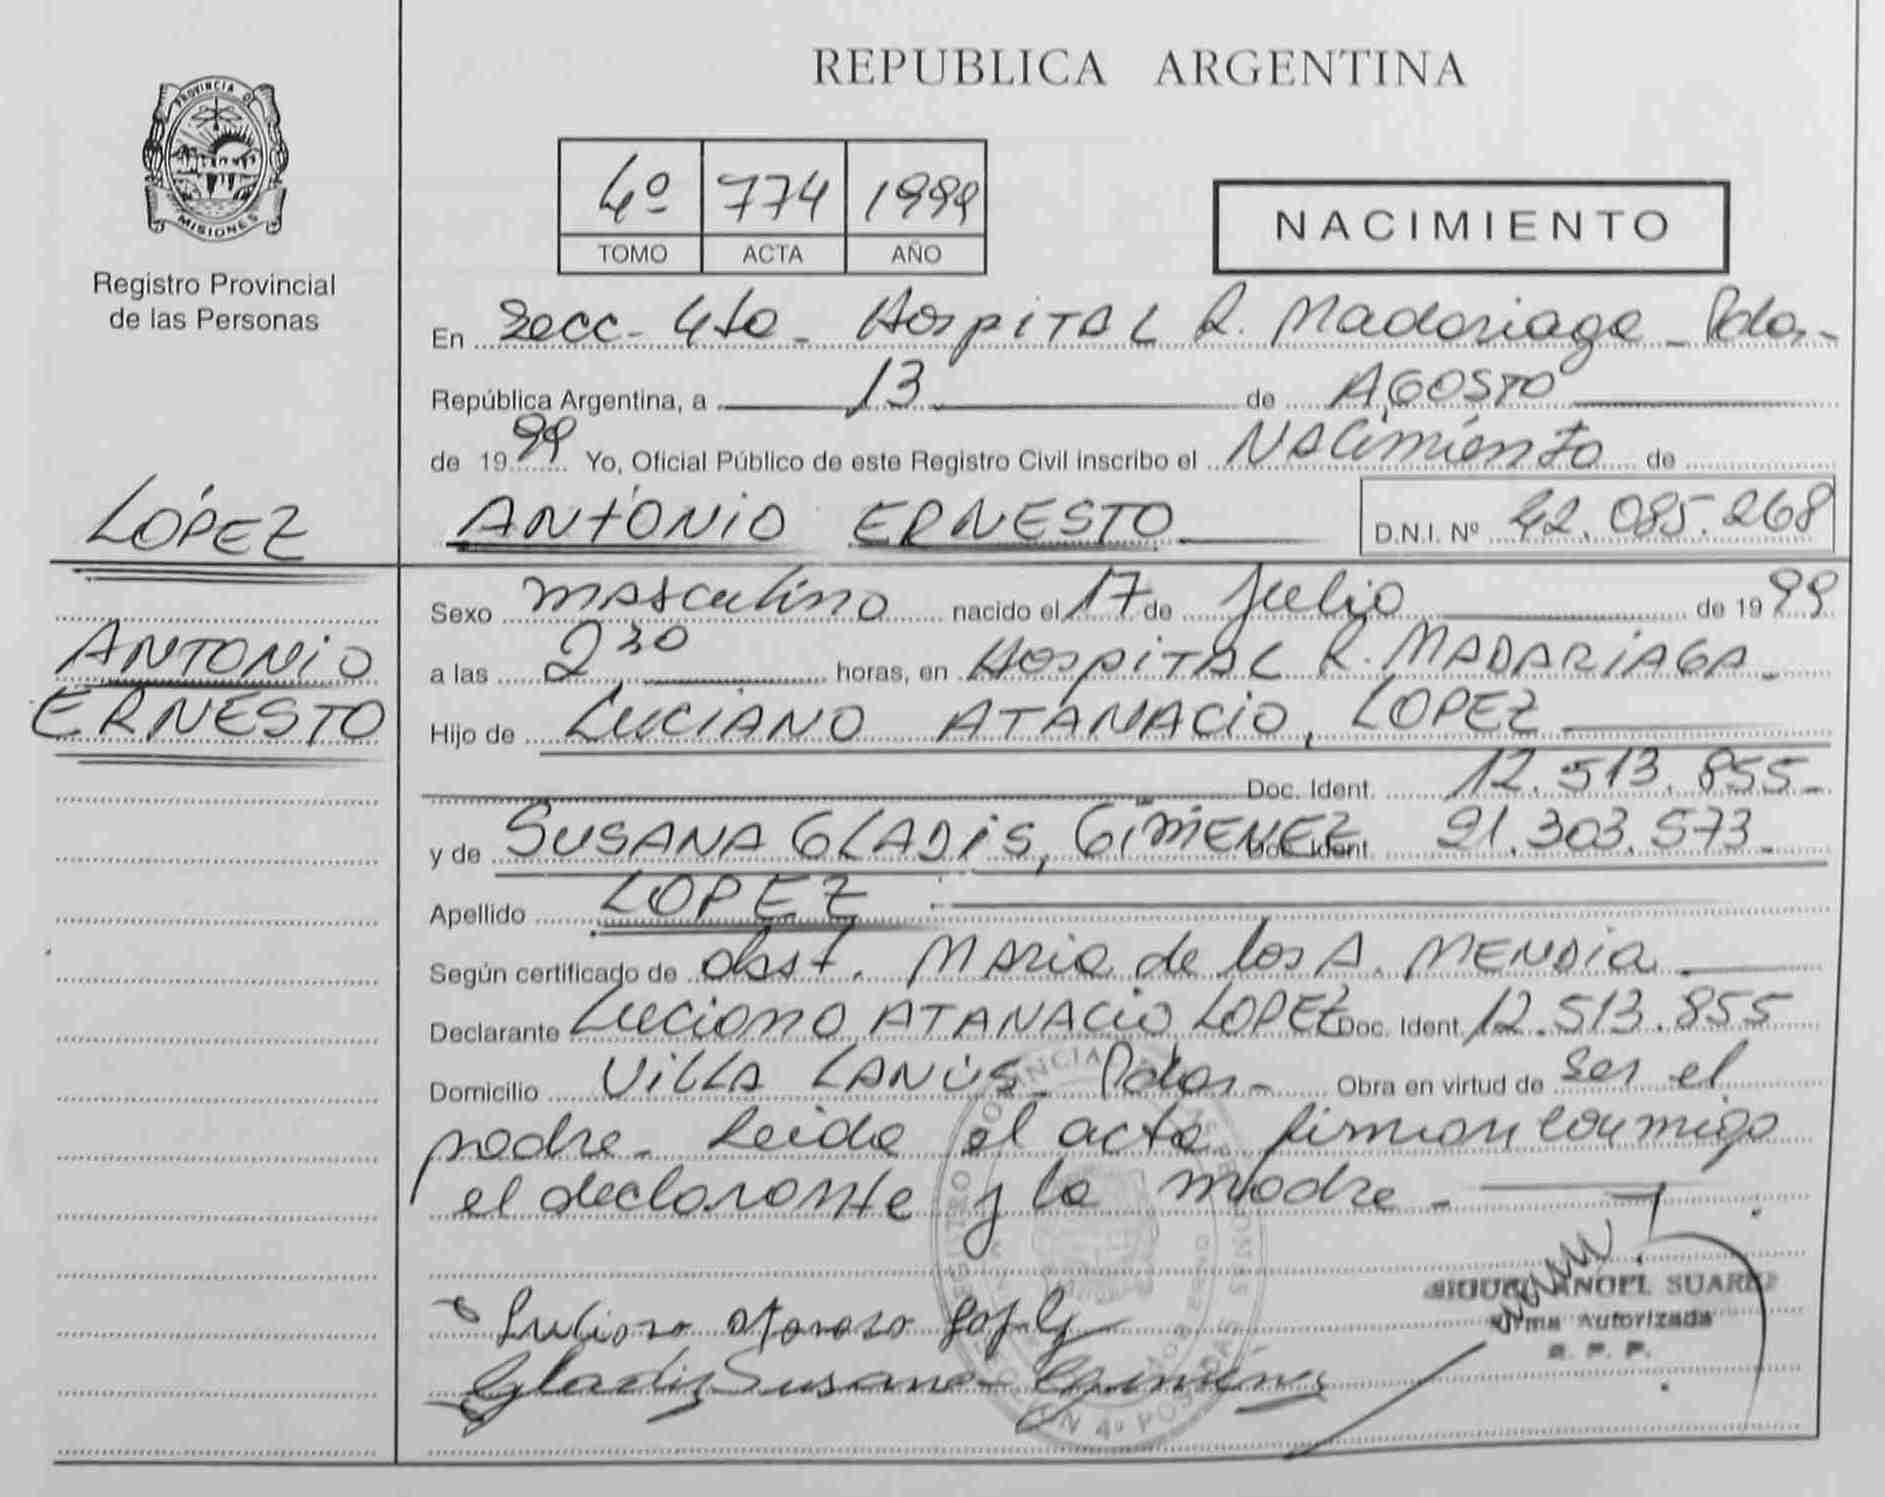 REPUBLICA ARGENTINA
PROVINCIA D
MISIONES
Registro Provincial
de las Personas
4º 774 1999
TOMO ACTA AÑO
NACIMIENTO
En Secc- 4ta- Hospital R. Madariaga - Pdas-
República Argentina, a 13 de AGOSTO
de 1999 Yo, Oficial Público de este Registro Civil inscribo el Nacimiento de
LÓPEZ
ANTONIO ERNESTO D.N.I. Nº 42.085.268
Sexo masculino nacido el 17 de Julio de 1999
ANTONIO
ERNESTO
a las 2 30 horas, en Hospital R. MADARIAGA-
Hijo de LUCIANO ATANACIO, LOPEZ
Doc. Ident. 12.513.855-
y de SUSANA GLADIS, GIMENEZ Doc. Ident. 21.303.573-
Apellido LOPEZ
Según certificado de obst. Maria de los A. MENDIA
Declarante Luciano ATANACIO LOPEZ Doc. Ident. 12.513.855
Domicilio Villa LANÚS- Pdas- Obra en virtud de ser el
padre- Leida el acta firman conmigo
el declarante y la madre-
MIGUEL ANGEL SUAREZ
Firma Autorizada
R. P. P.
Gladis Susana Gimenez